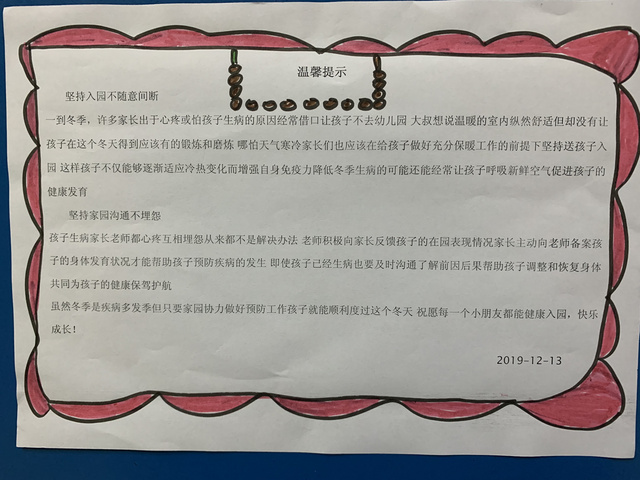 温馨提示
坚持入园不随意间断
一到冬季，许多家长出于心疼或怕孩子生病的原因经常借口让孩子不去幼儿园 大叔想说温暖的室内纵然舒适但却没有让
孩子在这个冬天得到应该有的锻炼和磨炼 哪怕天气寒冷家长们也应该在给孩子做好充分保暖工作的前提下坚持送孩子入
园 这样孩子不仅能够逐渐适应冷热变化而增强自身免疫力降低冬季生病的可能还能经常让孩子呼吸新鲜空气促进孩子的
健康发育
坚持家园沟通不埋怨
孩子生病家长老师都心疼互相埋怨从来都不是解决办法 老师积极向家长反馈孩子的在园表现情况家长主动向老师备案孩
子的身体发育状况才能帮助孩子预防疾病的发生 即使孩子已经生病也要及时沟通了解前因后果帮助孩子调整和恢复身体
共同为孩子的健康保驾护航
虽然冬季是疾病多发季但只要家园协力做好预防工作孩子就能顺利度过这个冬天 祝愿每一个小朋友都能健康入园，快乐
成长！
2019-12-13